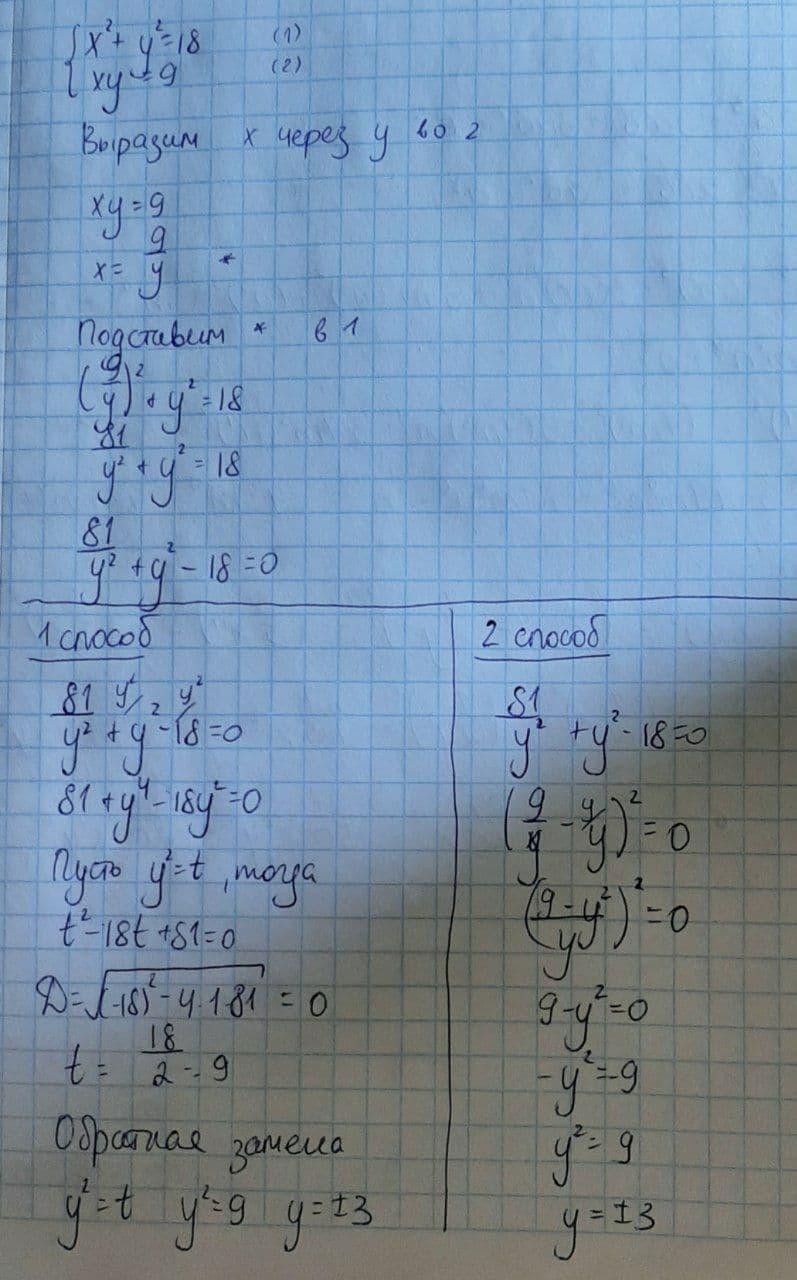 { x² + y² = 18 (1)
{ xy = 9 (2)
Выразим x через y во 2
xy = 9
x = 9/y *
Подставим * в 1
(9/y)² + y² = 18
81/y² + y² = 18
81/y² + y² - 18 = 0
1 способ
81/y² + y² - 18 = 0
y² y²
81 + y⁴ - 18y² = 0
Пусть y² = t, тогда
t² - 18t + 81 = 0
D = √(-18)² - 4·1·81 = 0
t = 18/2 = 9
Обратная замена
y² = t y² = 9 y = ±3
2 способ
81/y² + y² - 18 = 0
(9/y - y/y)² = 0
((9 - y²)/y)² = 0
9 - y² = 0
-y² = -9
y² = 9
y = ±3